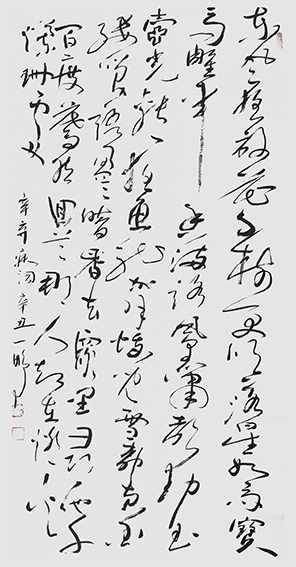 东风夜放花千树更吹落星如雨寶
马雕车香满路鳳箫声动玉
壶光转一夜鱼龙舞蛾儿雪柳黄金
缕笑语盈盈暗香去眾里寻他千
百度蓦然回首那人却在灯火
阑珊处
辛弃疾词 辛丑一